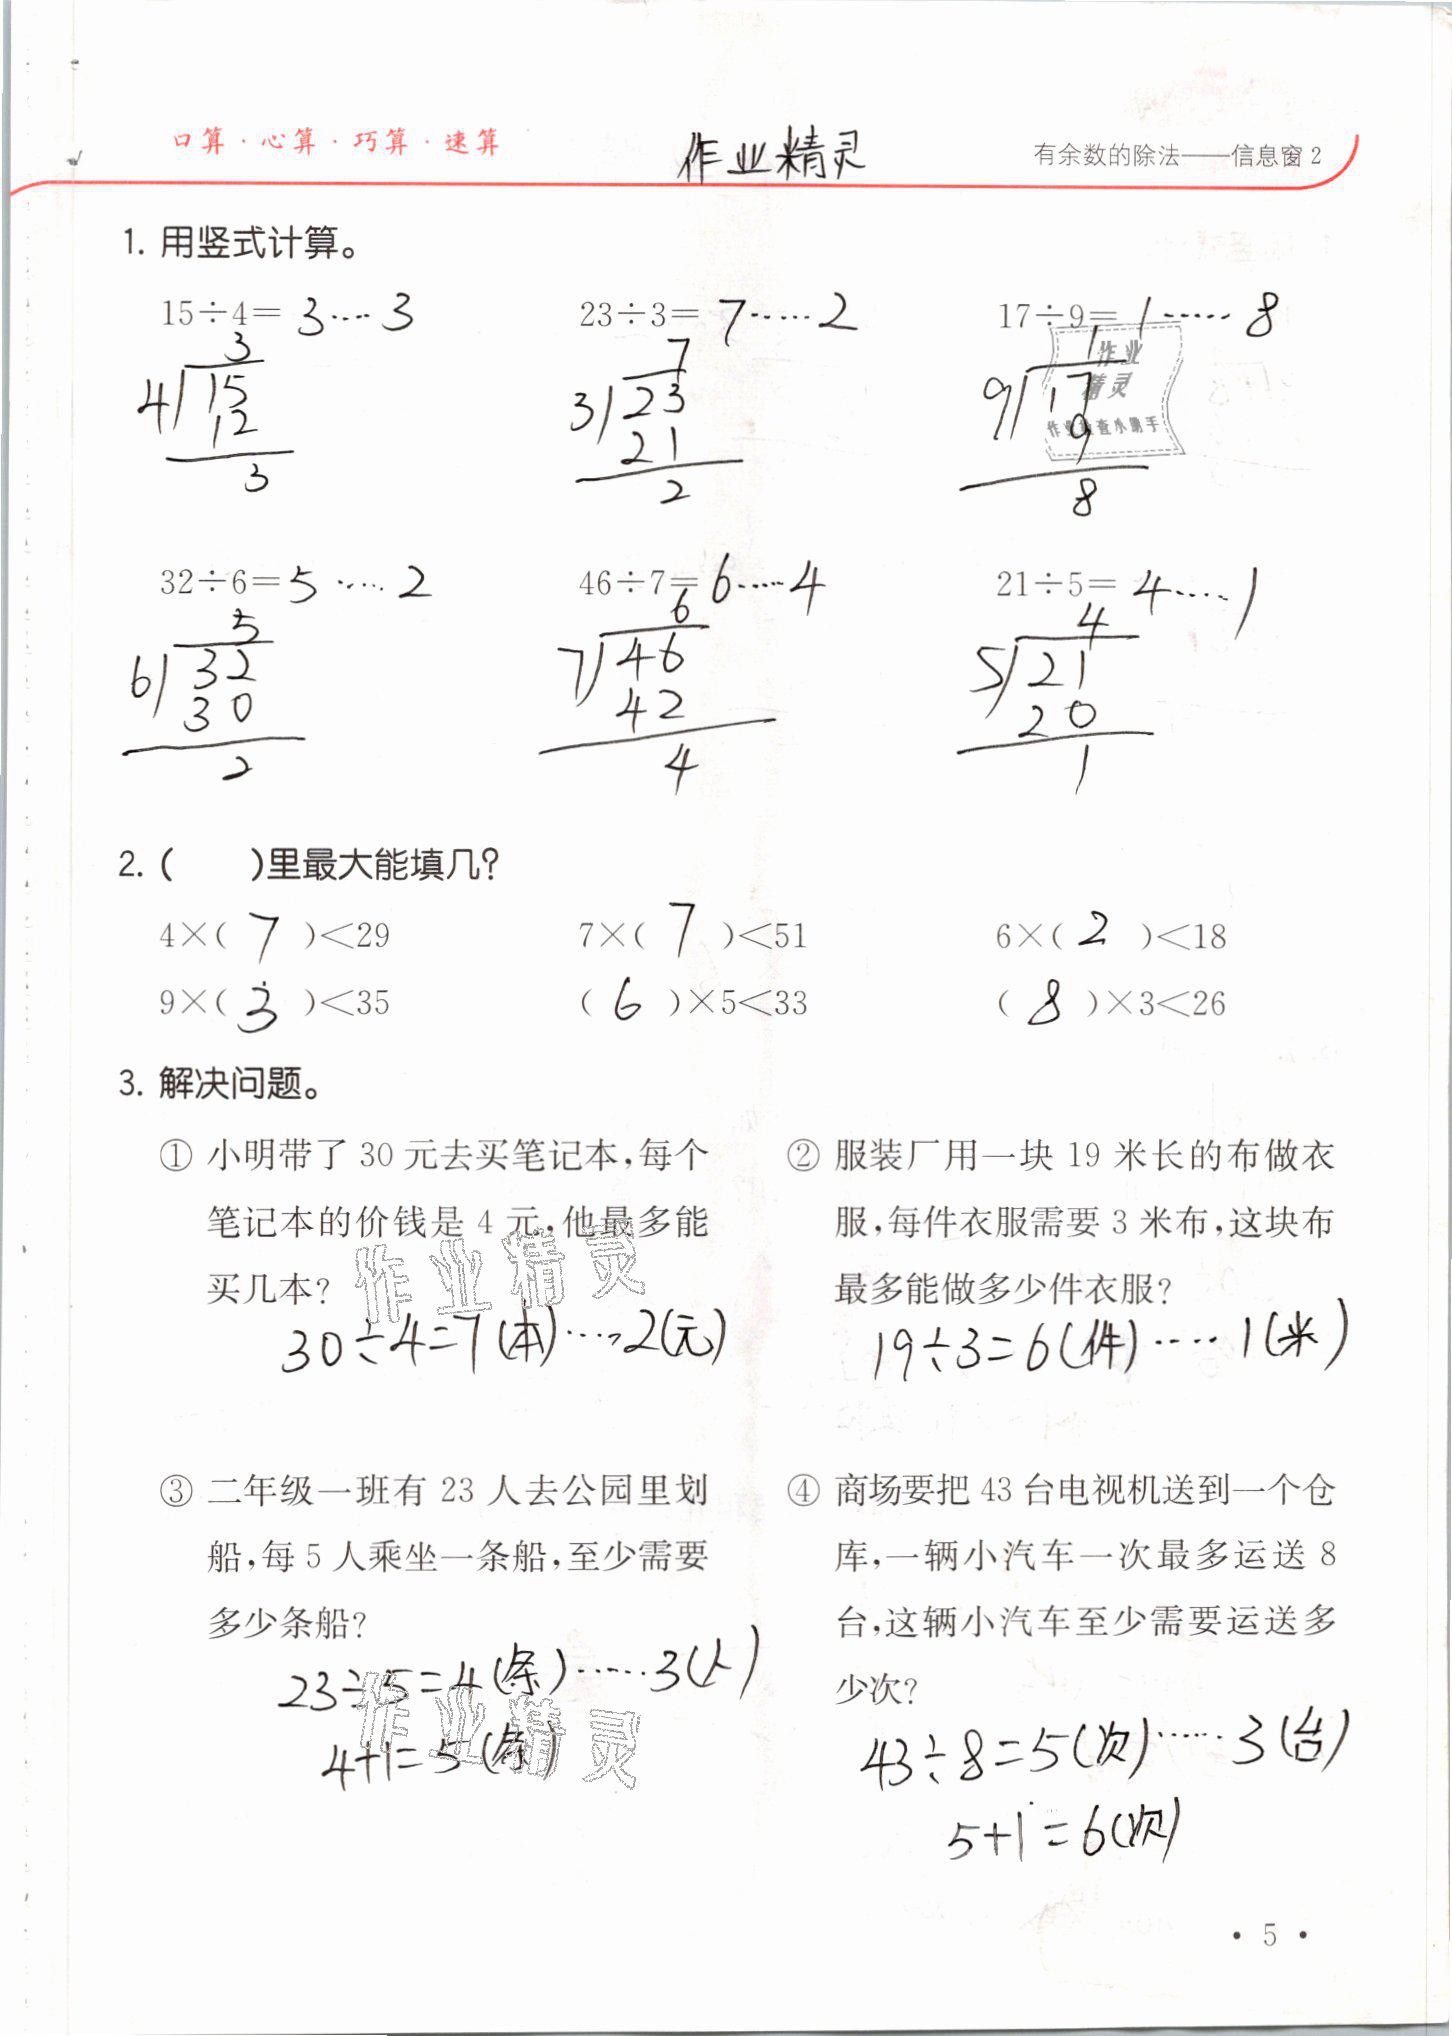 口算·心算·巧算·速算 作业精灵 有余数的除法——信息窗2
1. 用竖式计算。
15÷4= 3····3 23÷3= 7·····2 17÷9= 1·····8
3 7 1
4 15 3 23 9 17
12 21 9
3 2 8
作业
精灵
作业检查小助手
32÷6= 5·····2 46÷7= 6·····4 21÷5= 4····1
5 6 4
6 32 7 46 5 21
30 42 20
2 4 1
2. ( )里最大能填几?
4×( 7 )<29 7×( 7 )<51 6×( 2 )<18
9×( 3 )<35 ( 6 )×5<33 ( 8 )×3<26
3. 解决问题。
① 小明带了 30 元去买笔记本,每个
笔记本的价钱是 4 元,他最多能
买几本?
作业精灵
30÷4=7(本)·····2(元)
② 服装厂用一块 19 米长的布做衣
服,每件衣服需要 3 米布,这块布
最多能做多少件衣服?
19÷3=6(件)·····1(米)
③ 二年级一班有 23 人去公园里划
船,每 5 人乘坐一条船,至少需要
多少条船?
23÷5=4(条)·····3(人)
4+1=5(条)
作业精灵
④ 商场要把 43 台电视机送到一个仓
库,一辆小汽车一次最多运送 8
台,这辆小汽车至少需要运送多
少次?
43÷8=5(次)·····3(台)
5+1=6(次)
· 5 ·